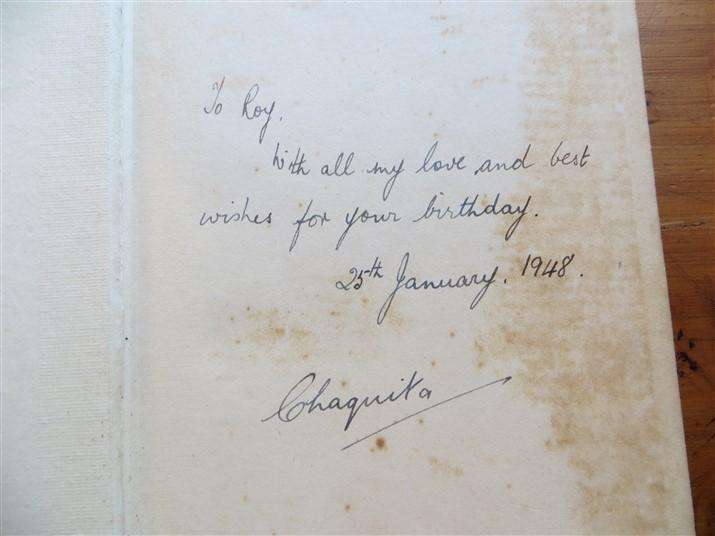 To Roy,
With all my love and best
wishes for your birthday.
25th January, 1948.
Chaquita